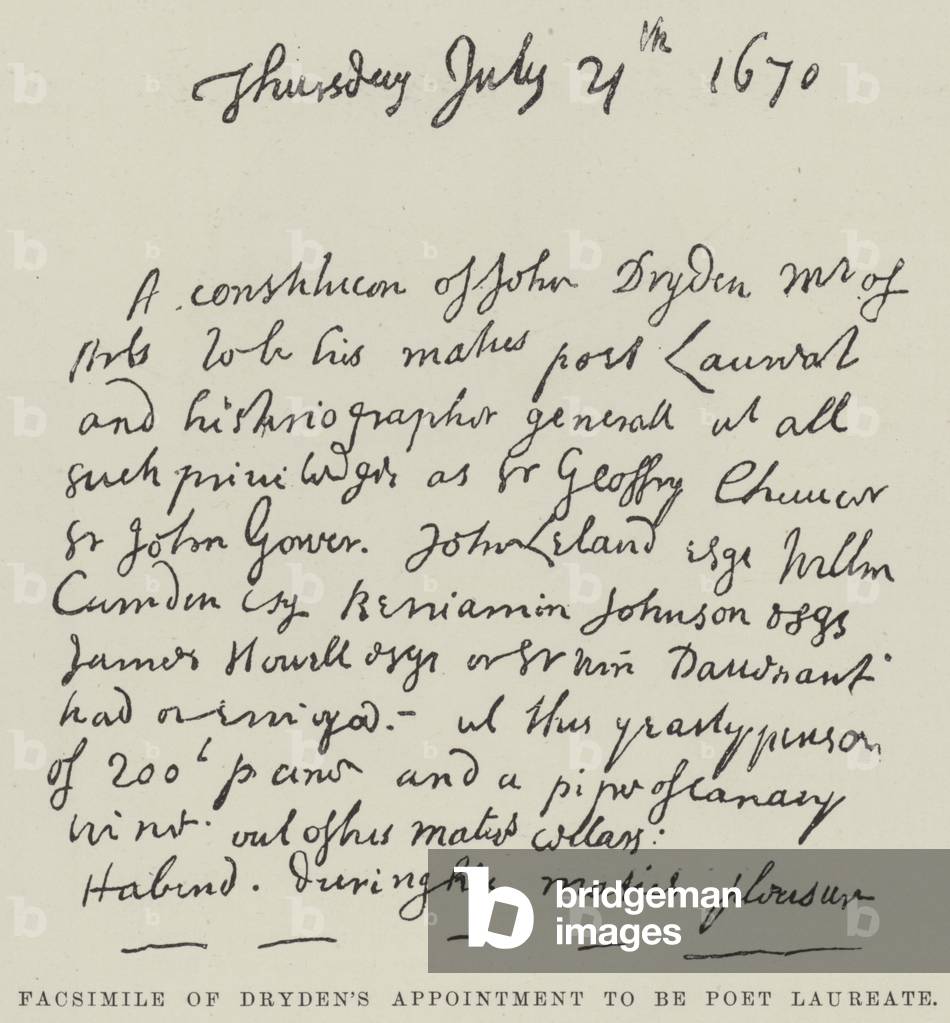 Thursday July 21th 1670
A constitucon of John Dryden Mr of
Arts to be his maties poet Laureat
and historiographer generall wt all
such priviledges as Sr Geoffry Chaucer
Sr John Gower. John Leland esqe Willm
Camden esq Beniamin Johnson esqe
James Howell esqe or Sr Wm Dauenant
had or enioyed.- wt the yearly penson
of 200l p ann and a pipe of Canary
wine out of his maties cellars:
Habend. during his maties pleasure
bridgeman
images
FACSIMILE OF DRYDEN'S APPOINTMENT TO BE POET LAUREATE.